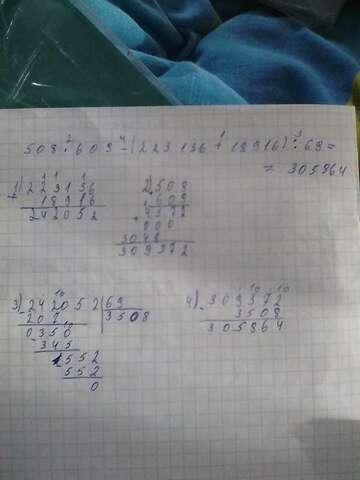 2 4 1 3
508 · 609 - (223136 + 18916) : 69 =
= 305864
1) 223136
+ 18916
242052
2) 508
609
+ 4572
000
3048
309372
3) - 242052 | 69
207 | 3508
0350
- 345
552
552
0
4) - 309372
3508
305864